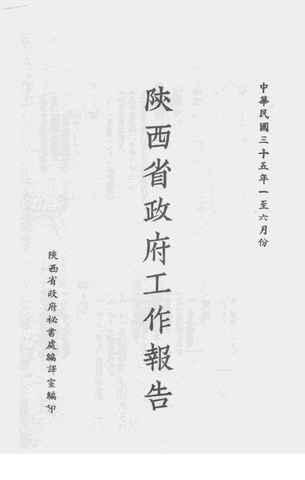 中華民國三十五年一至六月份
陝西省政府工作報告
陝西省政府祕書處編譯室編印